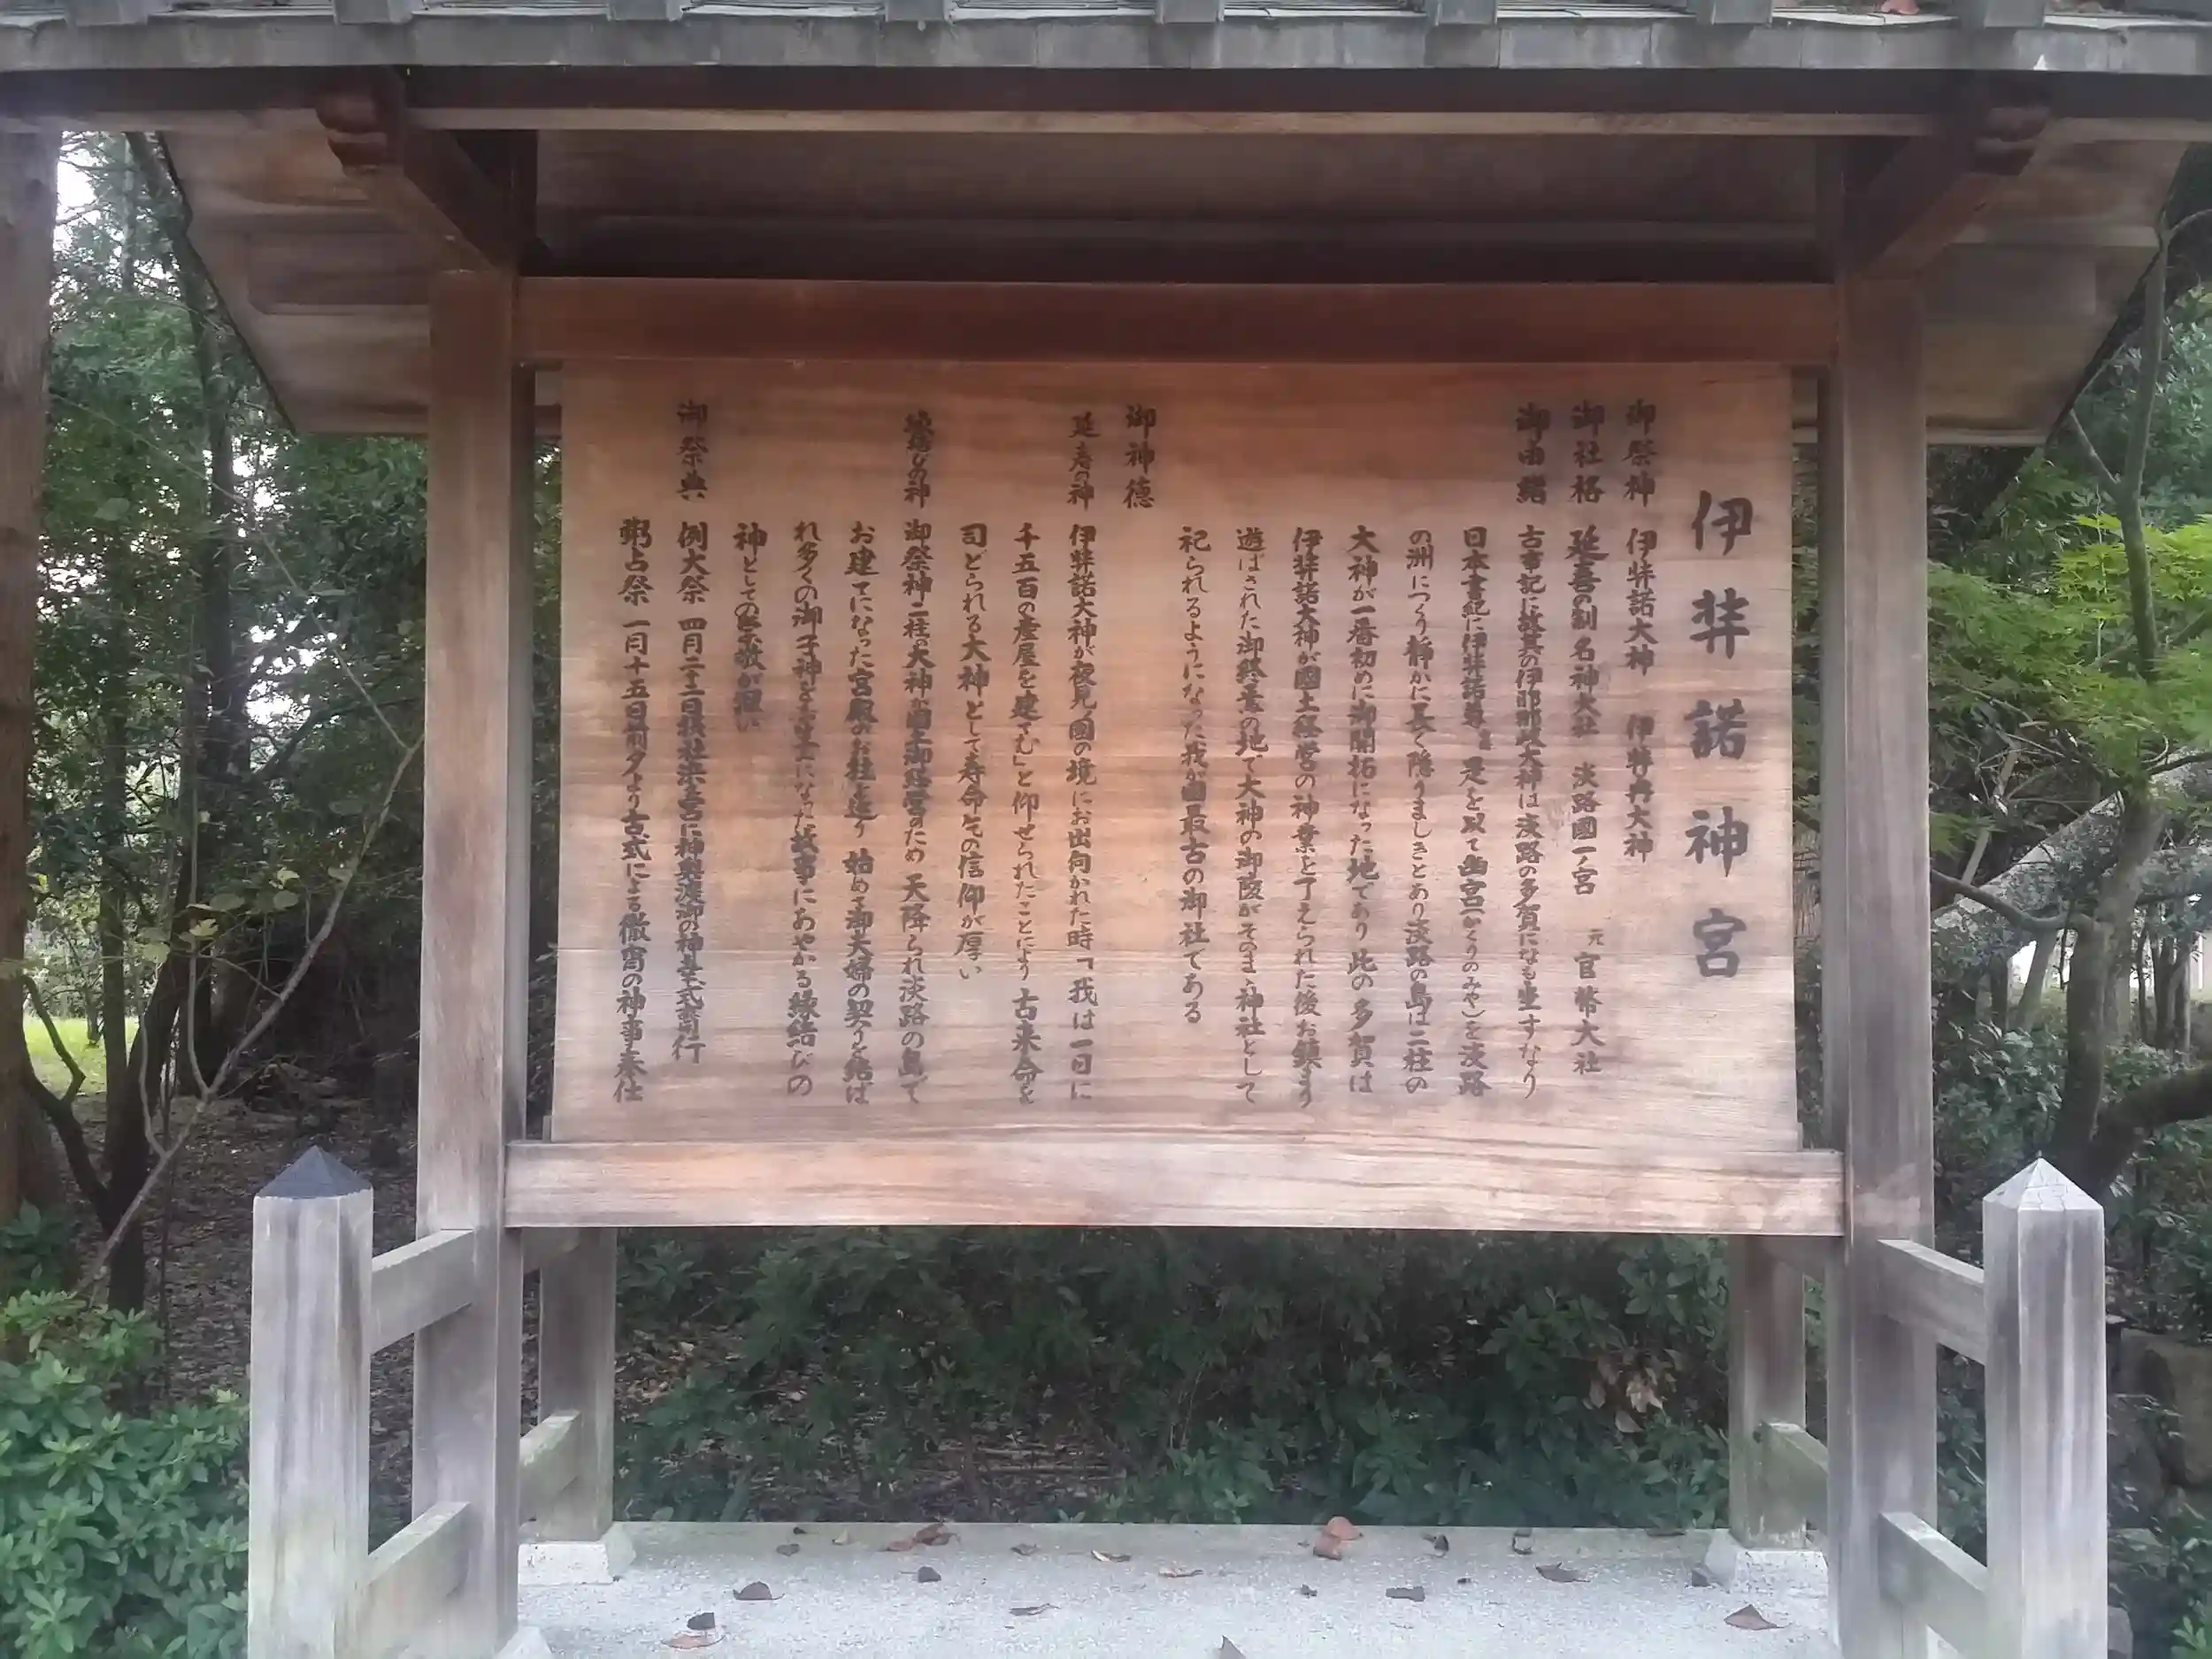 伊弉諾神宮
御祭神 伊弉諾大神 伊弉冉大神
御社格 延喜の制 名神大社 淡路國一ノ宮 元 官幣大社
御由緒 古事記に故其の伊耶那岐大神は淡路の多賀になも坐すなり
日本書紀に伊弉諾尊 是を以て幽宮(かくりのみや)を淡路
の洲につくり静かに長く隠りましきとあり淡路の島は二柱の
大神が一番初めに御開拓になった地であり 此の多賀は
伊弉諾大神が國土経営の神業を了えられた後お鎮まり
遊ばされた御終焉の地で大神の御陵がそのまゝ神社として
祀られるようになった我が國最古の御社である
御神徳
延寿の神 伊弉諾大神が夜見の國の境にお出向かれた時「我は一日に
千五百の産屋を建てむ」と仰せられたことにより 古来命を
司どられる大神として寿命乞の信仰が厚い
縁結びの神 御祭神二柱の大神が國土御経営のため 天降られ淡路の島で
お建てになった宮殿のお柱を廻り 始めて御夫婦の契りを結ば
れ多くの御子神をお生みになった故事にあやかる縁結びの
神としての崇敬が深い
御祭典 例大祭 四月二十二日 に神輿渡御の神幸式斎行
粥占祭 一月十五日 前夕より古式による徹宵の神事奉仕